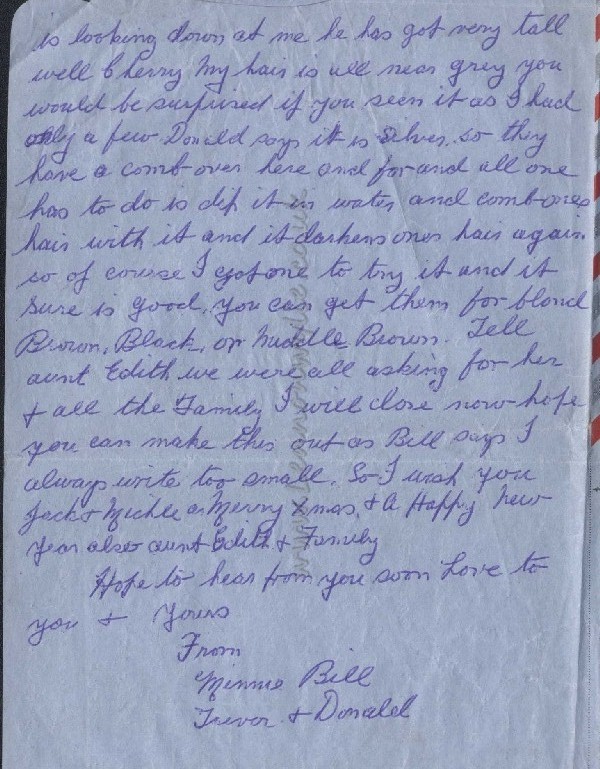 is looking down at me he has got very tall
well Cherry my hair is all near grey you
would be surprised if you seen it as I had
only a few Donald says it is silver. so they
have a comb over here and for and all one
has to do is dip it in water and comb ones
hair with it and it darkens ones hair again.
so of course I got one to try it and it
sure is good. you can get them for blond
Brown, Black, or Middle Brown. Tell
aunt Edith we were all asking for her
& all the Family I will close now hope
you can make this out as Bill says I
always write too small. So I wish you
Jack & a Merry Xmas, & A Happy New
Year also aunt Edith & Family
Hope to hear from you soon Love to
you & Yours
From
Minnie Bill
Trevor & Donald